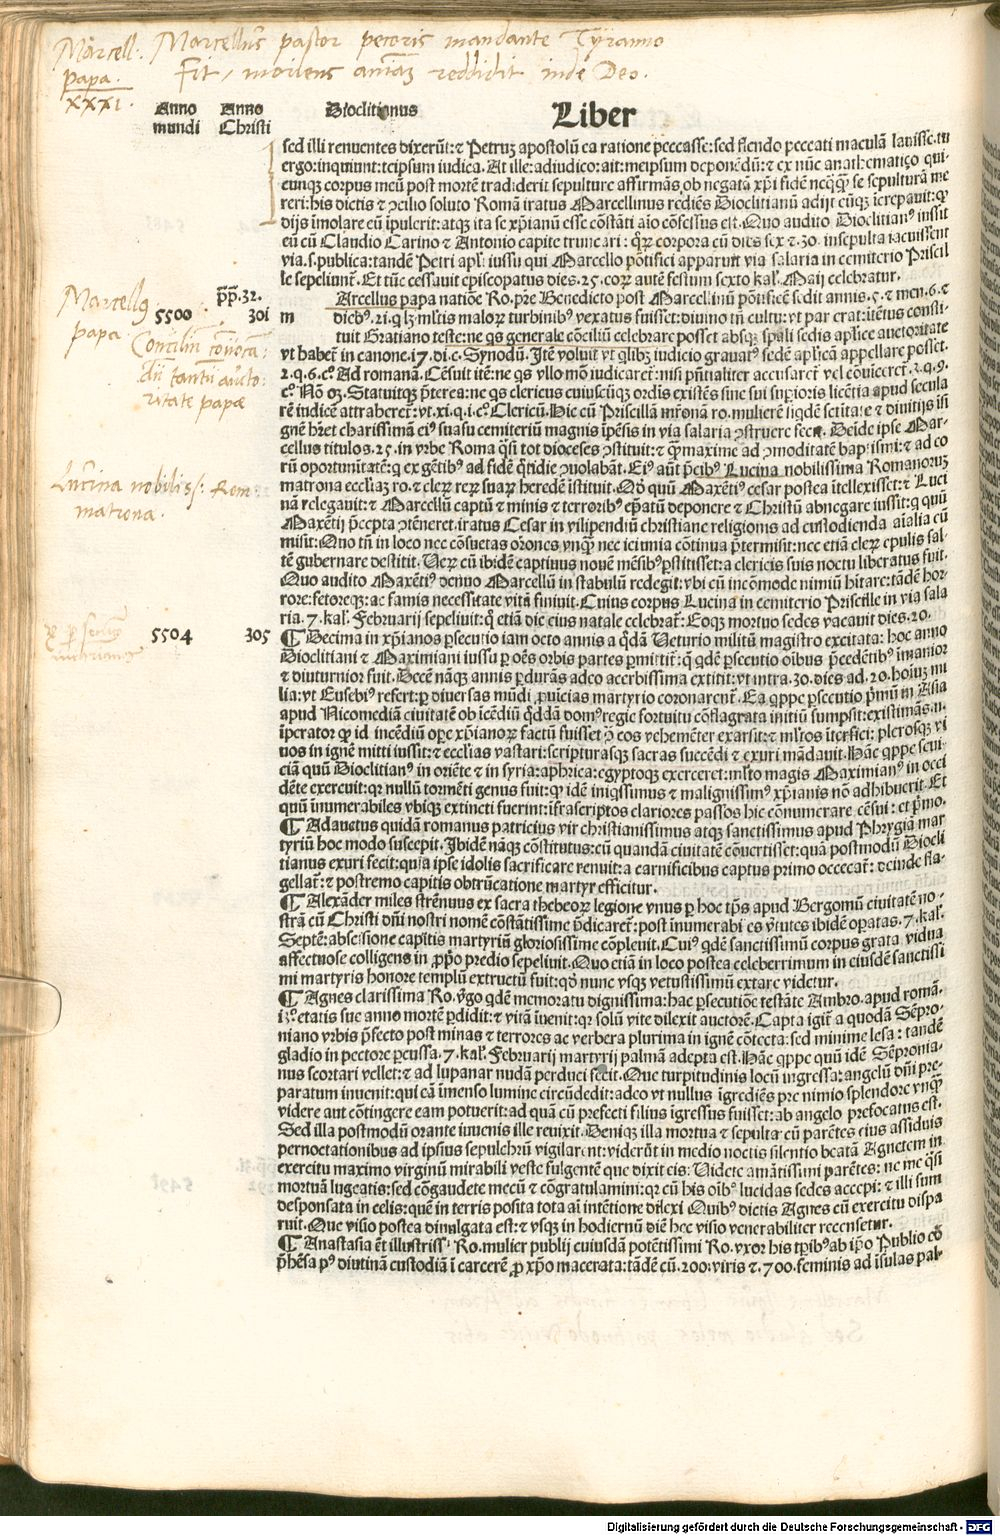 Marcell: Marcellus pastor pecoris mandante Tyranno
papa. Fit, moriens animam reddidit inde Deo.
XXXI.
Anno mundi Anno Christi Dioclitianus Liber
sed illi renuentes dixerūt: ⁊ Petruz apostolū ea ratione peccasse: sed flendo peccati maculā lauisse. tu
ergo: inquiunt: teipsum iudica. At ille: adiudico: ait: meipsum deponēdū: ⁊ ex nūc anathematizo qui-
cunqz corpus meū post mortē tradiderit sepulture affirmās ob negatā xp̄i fidē neqq̄ se sepulturā me
reri: his dictis ⁊ ꝯcilio soluto Romā iratus Marcellinus rediēs Dioclitianū adijt eūqz īcrepauit: ꝙ
dijs īmolare eū īpulerit: atqz ita se xp̄ianū esse cōstāti aīo cōfessus est. Quo audito Dioclitianꝰ iussit
eū cū Claudio Carino ⁊ Antonio capite truncari: q̄rꝫ corpora cū dies sex ⁊ .30. insepulta iacuissent
via .s. publica: tandē Petri apl̄i iussu qui Marcello pōtifici apparuit via salaria in cemiterio Priscil
le sepeliunt̄. Et tūc cessauit episcopatus dies .25. corꝫ autē festum sexto kal̄. Maij celebratur.
Marcellꝰ papa
pp̄. 32.
5500 30i
m Arcellus papa natiōe Ro. pr̄e Benedicto post Marcellinū pōtificē sedit annis .5. ⁊ men. 6. ⁊
diebꝰ .21. q lꝫ ml̄tis malorꝫ turbinibꝰ vexatus fuisset: diuino tn̄ cultu: vt par erat: ītētus consti-
tuit Gratiano teste: ne qs generale cōciliū celebrare posset absqz sp̄ali sedis aplice auctoritate
Conciliū conuocan:
dū tantū aucto:
ritate papæ
vt habet̄ in canone .17. di. c. Synodū. Itē voluit vt qlibꝫ iudicio grauatꝰ sedē aplicā appellare posset.
2. q. 6. c̊. Ad romanā. Cēsuit itē: ne qs vllo mō iudicaret̄: nisi pn̄tialiter accusaret̄ vel cōuiceret̄ .3. q. 9.
c̊. Nō oꝫ. Statuitqz p̄terea: ne qs clericus cuiuscūqz ordīs existēs sine sui supioris licētia apud secula
rē iudicē attraheret̄: vt .xi. q. i. c̊. Clericū. Hic cū Priscillā mr̄onā ro. mulierē siqdē setitate ⁊ diuitijs īsi
gnē hr̄et charissimā eiꝰ suasu cemiteriū magnis īpēsis in via salaria ꝯstruere fecit. Deīde ipse Mar-
cellus titulos .25. in vrbe Roma q̄si tot dioceses ꝯstituit: ⁊ q̄ maxime ad ꝯmoditatē baptismi: ⁊ ad eo
rū oportunitatē: q ex gētibꝰ ad fidē q̄tidie ꝯuolabāt. Eiꝰ aūt p̄cibꝰ Lucina nobilissima Romanorū
Lucina nobiliss: Rom
matrona.
matrona eccl̄iaz ro. ⁊ clerꝫ rerꝫ suarꝫ heredē īstituit. Qd̄ quū Maxētiꝰ cesar postea ītellexisset: ⁊ Luci
nā relegauit: ⁊ Marcellū captū ⁊ minis ⁊ terroribꝰ ep̄atū deponere ⁊ Christū abnegare iussit: q quū
Maxētij p̄cepta ꝯtēneret. iratus Cesar in vilipendiū christiane religionis ad custodienda aīalia eū
misit: Quo tn̄ in loco nec cōsuetas orōnes vnqꝫ nec ieiunia cōtinua p̄termisit: nec etiā clerꝫ epulis sal-
tē gubernare destitit. Uerꝫ cū ibidē captiuus nouē mēsibꝰ pstitisset: a clericis suis noctu liberatus fuit.
Quo audito Maxētiꝰ denuo Marcellū in stabulū redegit: vbi cū incōmode nimiū hitare: tādē hor-
rore: fetoreqz: ac famis necessitate vitā finiuit. Cuius corpus Lucina in cemiterio Priscille in via sala
ria. 7. kal̄. Februarij sepeliuit: q̄ etiā die eius natale celebrat̄: Eoqz mortuo sedes vacauit dies .20.
5504 305
¶ Decima in xp̄ianos psecutio iam octo annis a q̄dā Ueturio militū magistro excitata: hoc anno
Dioclitiani ⁊ Maximiani iussu p oēs orbis partes pmittit̄: q̄ qdē psecutio oībus p̄cedētibꝰ īmanior
⁊ diuturnior fuit. Decē nāqz annis pdurās adeo acerbissima extitit: vt intra .30. dies ad .20. hoīuz mi
lia: vt Eusebiꝰ refert: p diuersas mūdi ꝓuīcias martyrio coronarent̄. Ea qppe psecutio p̄mū in Asia
apud Nicomediā ciuitatē ob īcēdiū q̄ddā domꝰ regie fortuitu cōflagrata initiū sumpsit: existimās .n.
īperator ꝙ id incēdiū ope xp̄ianorꝫ factū fuisset ī eos vehemēter exarsit: ⁊ ml̄tos īterfici: plerosqz vi
uos in ignē mitti iussit: ⁊ eccl̄ias vastari: scripturasqz sacras succēdi ⁊ exuri mādauit. Hāc qppe seui-
ciā quū Dioclitianꝰ in oriēte ⁊ in syria: aphrica: egyptoqz exerceret: ml̄to magis Maximianꝰ in occi
dēte exercuit: qr nullū tormēti genus fuit: ꝙ idē iniqssimus ⁊ malignissimꝰ xp̄ianis nō adhibuerit. Et
quū īnumerabiles vbiqz extincti fuerint: ifrascriptos clariores passos hic cōnumerare cēsui: et p̄mo.
¶ Adauctus quidā romanus patricius vir christianissimus atqz sanctissimus apud Phrygiā mar
tyriū hoc modo suscepit. Ibidē nāqz cōstitutus: cū quandā ciuitatē cōuertisset: quā postmodū Diocli
tianus exuri fecit: quia ipse idolis sacrificare renuit: a carnificibus captus primo occecat̄: deinde fla-
gellat̄: ⁊ postremo capitis obtrūcatione martyr efficitur.
¶ Alexāder miles strēnuus ex sacra thebeorꝫ legione vnus p hoc tp̄s apud Bergomū ciuitatē no-
strā cū Christi dn̄i nostri nomē cōstātissime p̄dicaret̄: post īnumerabiles ṽtutes ibidē opatas .7. kal̄.
Septē: abscisione capitis martyriū gloriosissime cōpleuit. Cuiꝰ qdē sanctissimū corpus grata vidua
affectuose colligens in ꝓpo predio sepeliuit. Quo etiā in loco postea celeberrimum in eiusdē sanctissi
mi martyris honore templū extructū fuit: qd̄ nunc vsqz vetustissimū extare videtur.
¶ Agnes clarissima Ro. ṽgo qdē memoratu dignissima: hac psecutiōe testāte Ambro. apud romā.
i3. etatis sue anno mortē pdidit: ⁊ vitā īuenit: qr solū vite dilexit auctorē. Capta igit̄ a quodā Sēpro-
niano vrbis p̄fecto post minas ⁊ terrores ac verbera plurima in ignē cōiecta: sed minime lesa: tandē
gladio in pectore pcussa .7. kal̄. Februarij martyrij palmā adepta est. Hāc qppe quū idē Sēpronia-
nus scortari vellet: ⁊ ad lupanar nudā perduci fecit. Que turpitudinis locū ingressa: angelū dn̄i pre-
paratum inuenit: qui eā īmenso lumine circūdedit: adeo vt nullus īgrediēs pre nimio splendore vnqꝫ
videre aut cōtingere eam potuerit: ad quā cū prefecti filius īgressus fuisset: ab angelo prefocatus est.
Sed illa postmodū orante iuuenis ille reuixit. Deniqz illa mortua ⁊ sepulta cū parētes eius assiduis
pernoctationibus ad ipsius sepulchrū vigilarent: viderūt in medio noctis silentio beatā Agnetem in
exercitu maximo virginū mirabili veste fulgentē que dixit eis: Uidete amātissimi parētes: ne me q̄si
mortuā lugeatis: sed cōgaudete mecū ⁊ cōgratulamini: qr cū his oībꝰ lucidas sedes accepi: ⁊ illi sum
desponsata in celis: quē in terris posita tota aī intētione dilexi Quibꝰ dictis Agnes cū exercitu dispa
ruit. Que visio postea diuulgata est: ⁊ vsqz in hodiernū diē hec visio venerabiliter recensetur.
¶ Anastasia ēt illustrissꝰ. Ro. mulier publij cuiusdā potētissimi Ro. vxor his tp̄ribꝰ ab ip̄o Publio cō
p̄hēsa pꝰ diutinā custodiā ī carcerē ꝓ xp̄o macerata: tādē cū .200. viris ⁊ .700. feminis ad īsulas pal-
Digitalisierung gefördert durch die Deutsche Forschungsgemeinschaft - DFG